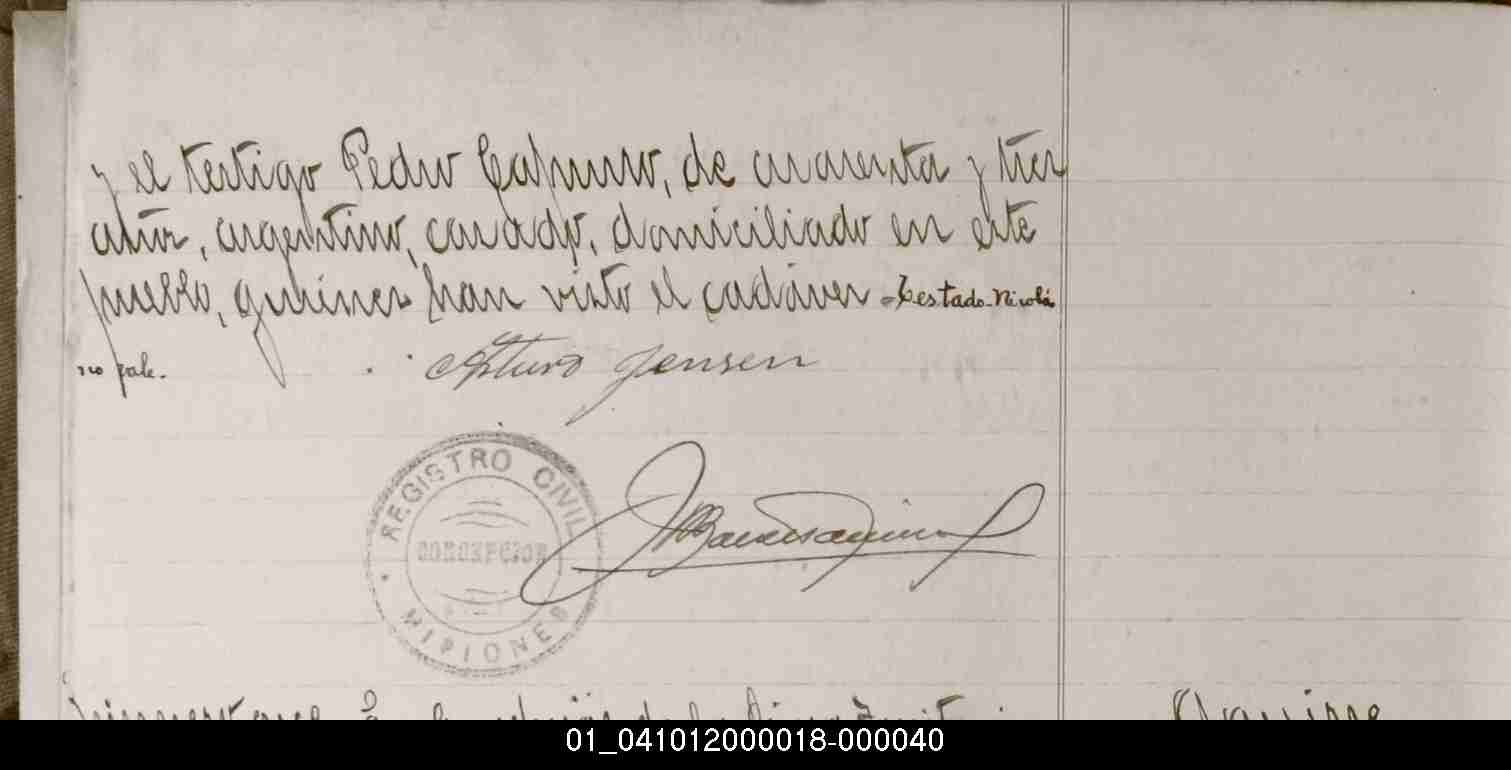 y el testigo Pedro Capurro, de cuarenta y tres
años, argentino, casado, domiciliado en este
pueblo, quienes han visto el cadáver - Testado - Nicolá
no vale.
Arturo Jensen
REGISTRO CIVIL
CONCEPCION
MISIONES
Aguirre
01_041012000018-000040